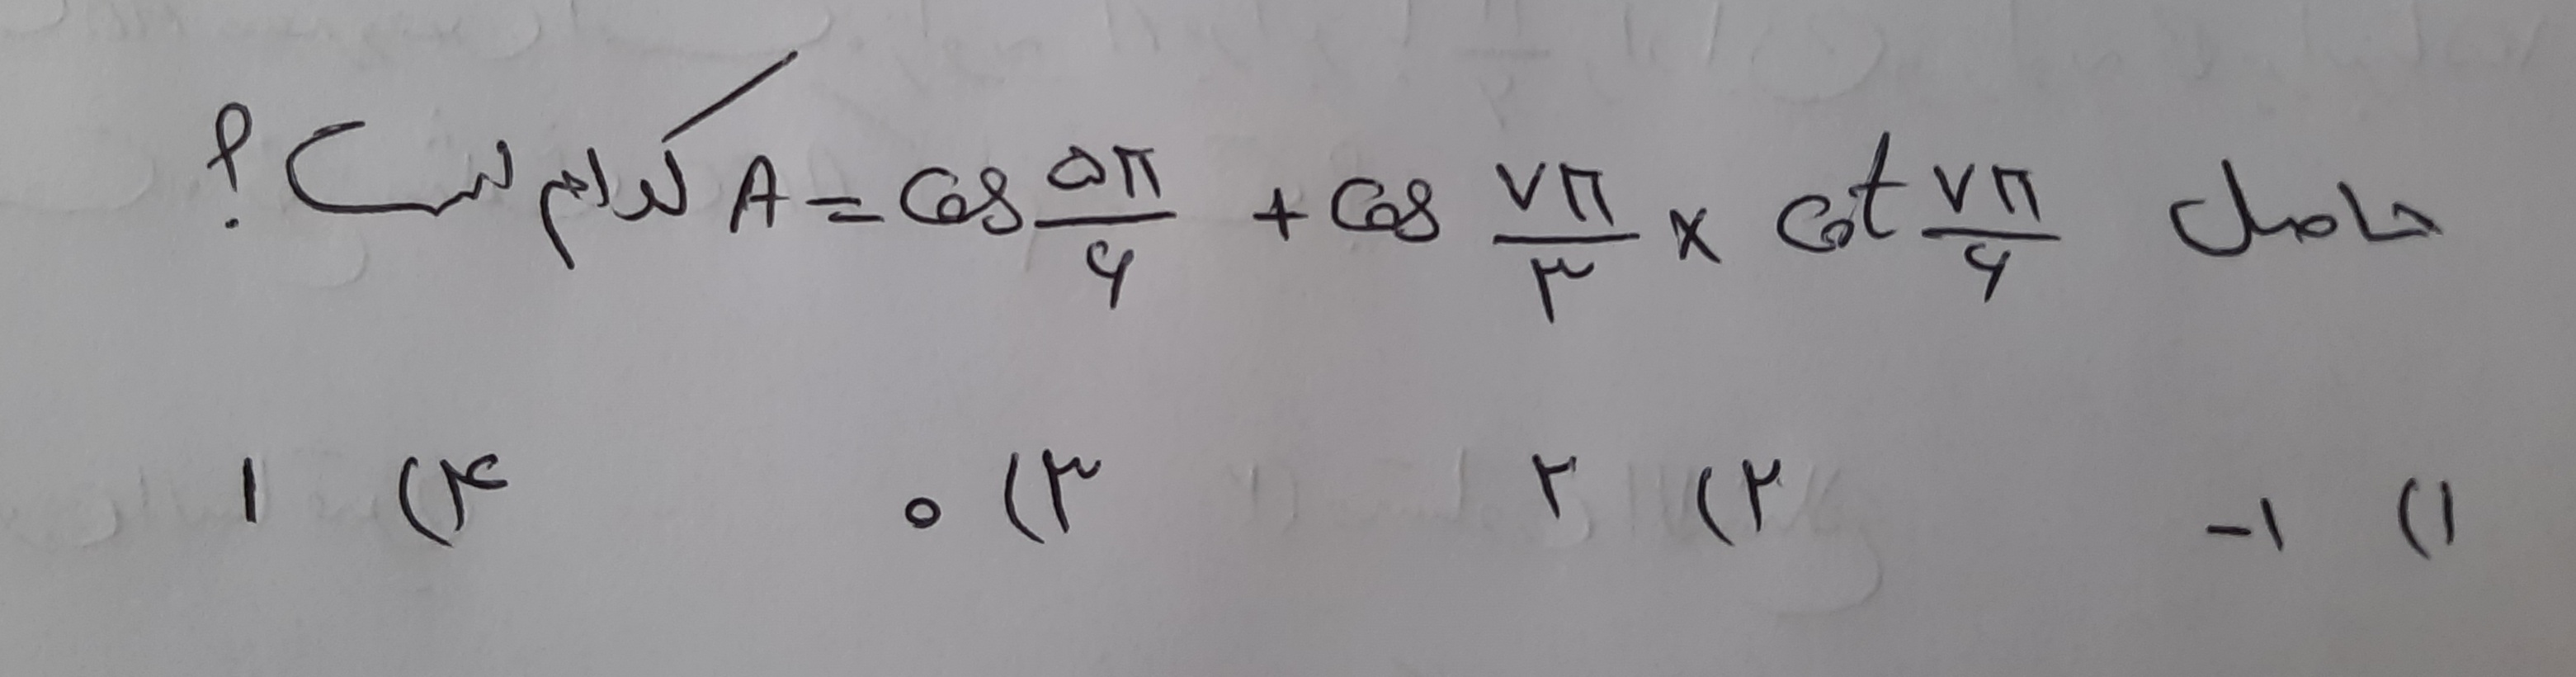 حاصل A = cos ۵π/۶ + cos ۷π/۳ × cot ۷π/۶ کدام است؟
۱) -۱ ۲) ۲ ۳) ۰ ۴) ۱